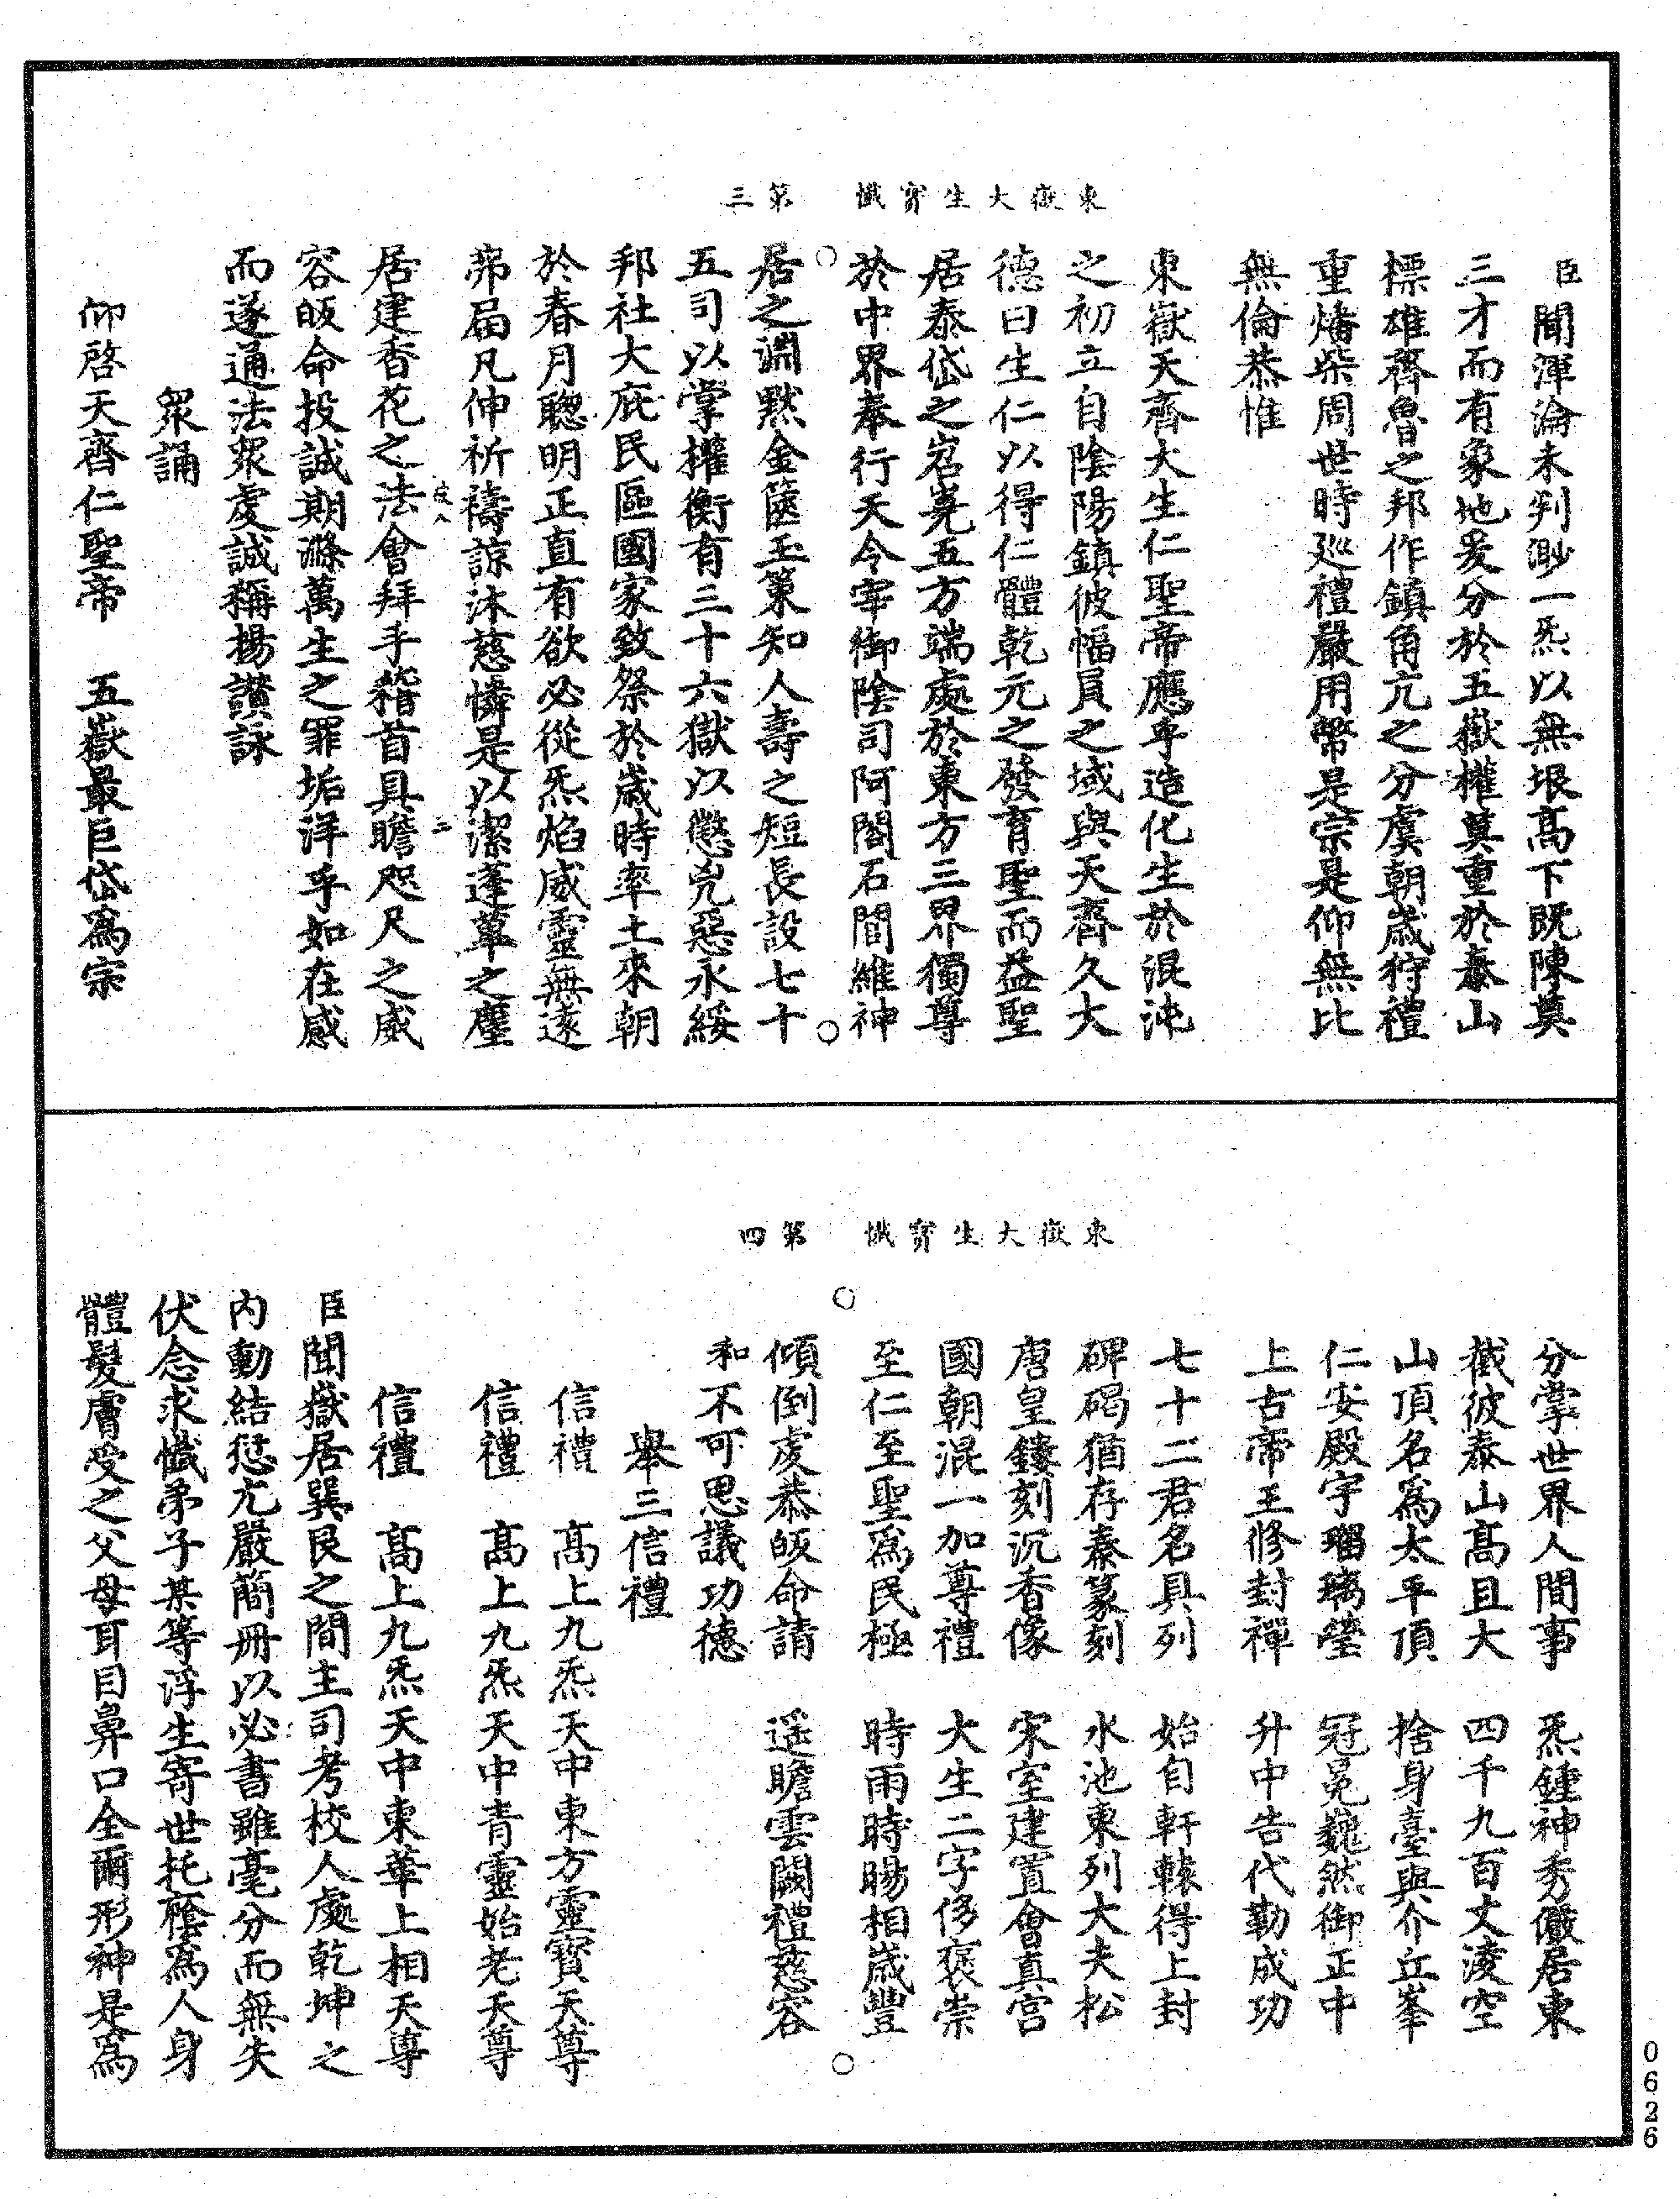 東嶽大生寳懺　第三
臣聞渾淪未判渺一炁以無垠髙下既陳奠
三才而有象地爰分於五嶽權莫重於泰山
標雄齊魯之邦作鎮角亢之分虞朝歲狩禮
重燔柴周世時廵禮嚴用幣是宗是仰無比
無倫恭惟
東嶽天齊大生仁聖帝應乎造化生於混沌
之初立自陰陽鎮彼幅員之域與天齊久大
德曰生仁以得仁體乾元之發育聖而益聖
居泰岱之岧嶤五方端處於東方三界獨尊
於中界奉行天令宰御隂司阿閣石閭維神
居之淵黙金篋玉策知人壽之短長設七十
五司以掌權衡有三十六獄以懲兇惡永綏
邦社大庇民區國家致祭於歲時率土來朝
於春月聦明正直有欲必從炁焰威靈無遠
弗届凡伸祈禱諒沐慈憐是以潔蓬蓽之㕓
居建香花之法㑹拜手稽首具瞻咫尺之威
容皈命投誠期滌萬生之罪垢洋乎如在感
而遂通法眾䖍誠稱揚讃詠
眾誦
仰啓天齊仁聖帝　五嶽最巨岱爲宗
東嶽大生寳懺　第四
分掌世界人間事　炁鍾神秀儼居東
㠂彼泰山髙且大　四千九百丈淩空
山頂名爲太平頂　捨身臺與介丘峯
仁安殿宇瑠璃瑩　冠冕巍然御正中
上古帝王修封禪　升中告代勤成功
七十二君名具列　始自軒轅得上封
碑碣猶存秦篆刻　水池東列大夫松
唐皇鏤刻沉香像　宋室建置會真宫
國朝混一加尊禮　大生二字侈褒崇
至仁至聖爲民極　時雨時暘相歲豐
傾倒䖍恭皈命請　遥瞻雲闕禮慈容
和不可思議功德
舉三信禮
信禮　髙上九炁天中東方靈寳天尊
信禮　髙上九炁天中青靈始老天尊
信禮　髙上九炁天中東華上相天尊
臣聞嶽居巽艮之間主司考校人處乾坤之
内動結愆尤嚴簡冊以必書雖毫分而無失
伏念求懺弟子某等浮生寄世托廕爲人身
體髮膚受之父母耳目鼻口全爾形神是爲
0626